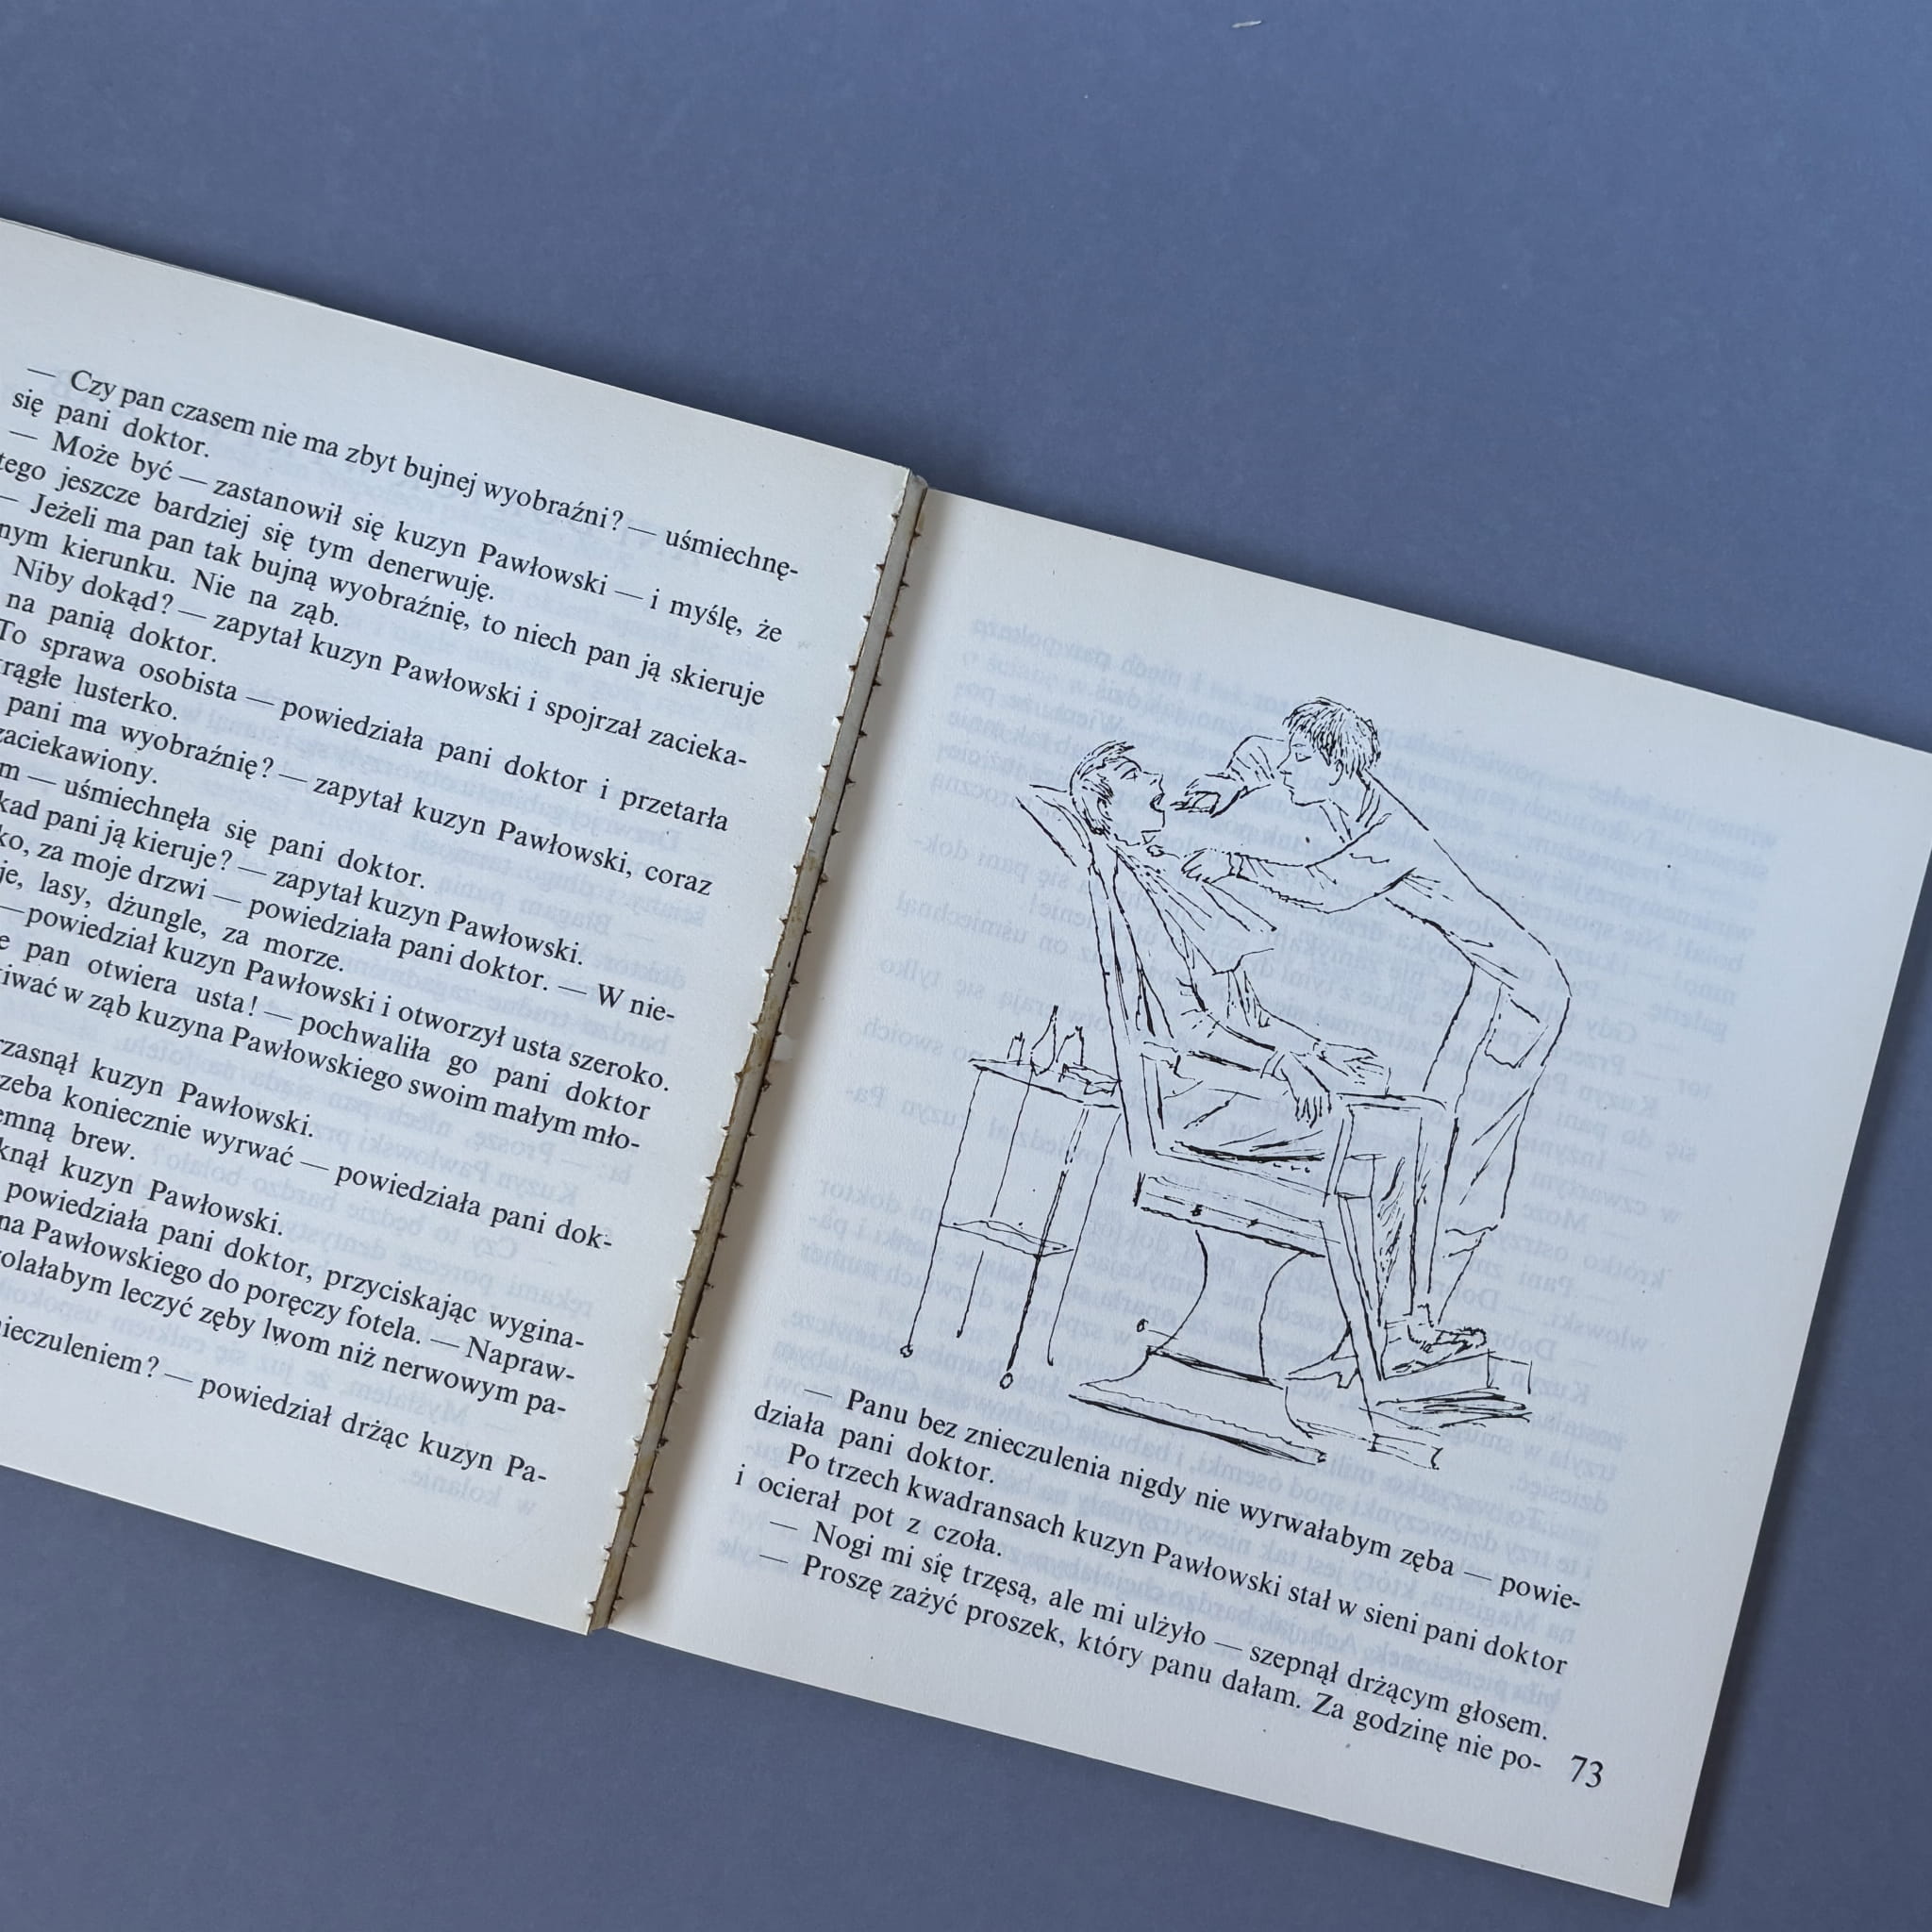 — Czy pan czasem nie ma zbyt bujnej wyobraźni? — uśmiechnę-
się pani doktor.
— Może być — zastanowił się kuzyn Pawłowski — i myślę, że
tego jeszcze bardziej się tym denerwuję.
— Jeżeli ma pan tak bujną wyobraźnię, to niech pan ją skieruje
nym kierunku. Nie na ząb.
Niby dokąd? — zapytał kuzyn Pawłowski i spojrzał zacieka-
na panią doktor.
To sprawa osobista — powiedziała pani doktor i przetarła
rągłe lusterko.
pani ma wyobraźnię? — zapytał kuzyn Pawłowski, coraz
zaciekawiony.
m — uśmiechnęła się pani doktor.
kąd pani ją kieruje? — zapytał kuzyn Pawłowski.
ko, za moje drzwi — powiedziała pani doktor. — W nie-
je, lasy, dżungle, za morze.
— powiedział kuzyn Pawłowski i otworzył usta szeroko.
e pan otwiera usta! — pochwaliła go pani doktor
iwać w ząb kuzyna Pawłowskiego swoim małym mło-
rzasnął kuzyn Pawłowski.
zeba koniecznie wyrwać — powiedziała pani dok-
emną brew.
knął kuzyn Pawłowski.
powiedziała pani doktor, przyciskając wygina-
na Pawłowskiego do poręczy fotela. — Napraw-
olałabym leczyć zęby lwom niż nerwowym pa-
nieczuleniem? — powiedział drżąc kuzyn Pa-
— Panu bez znieczulenia nigdy nie wyrwałabym zęba — powie-
działa pani doktor.
Po trzech kwadransach kuzyn Pawłowski stał w sieni pani doktor
i ocierał pot z czoła.
— Nogi mi się trzęsą, ale mi ulżyło — szepnął drżącym głosem.
— Proszę zażyć proszek, który panu dałam. Za godzinę nie po-
73